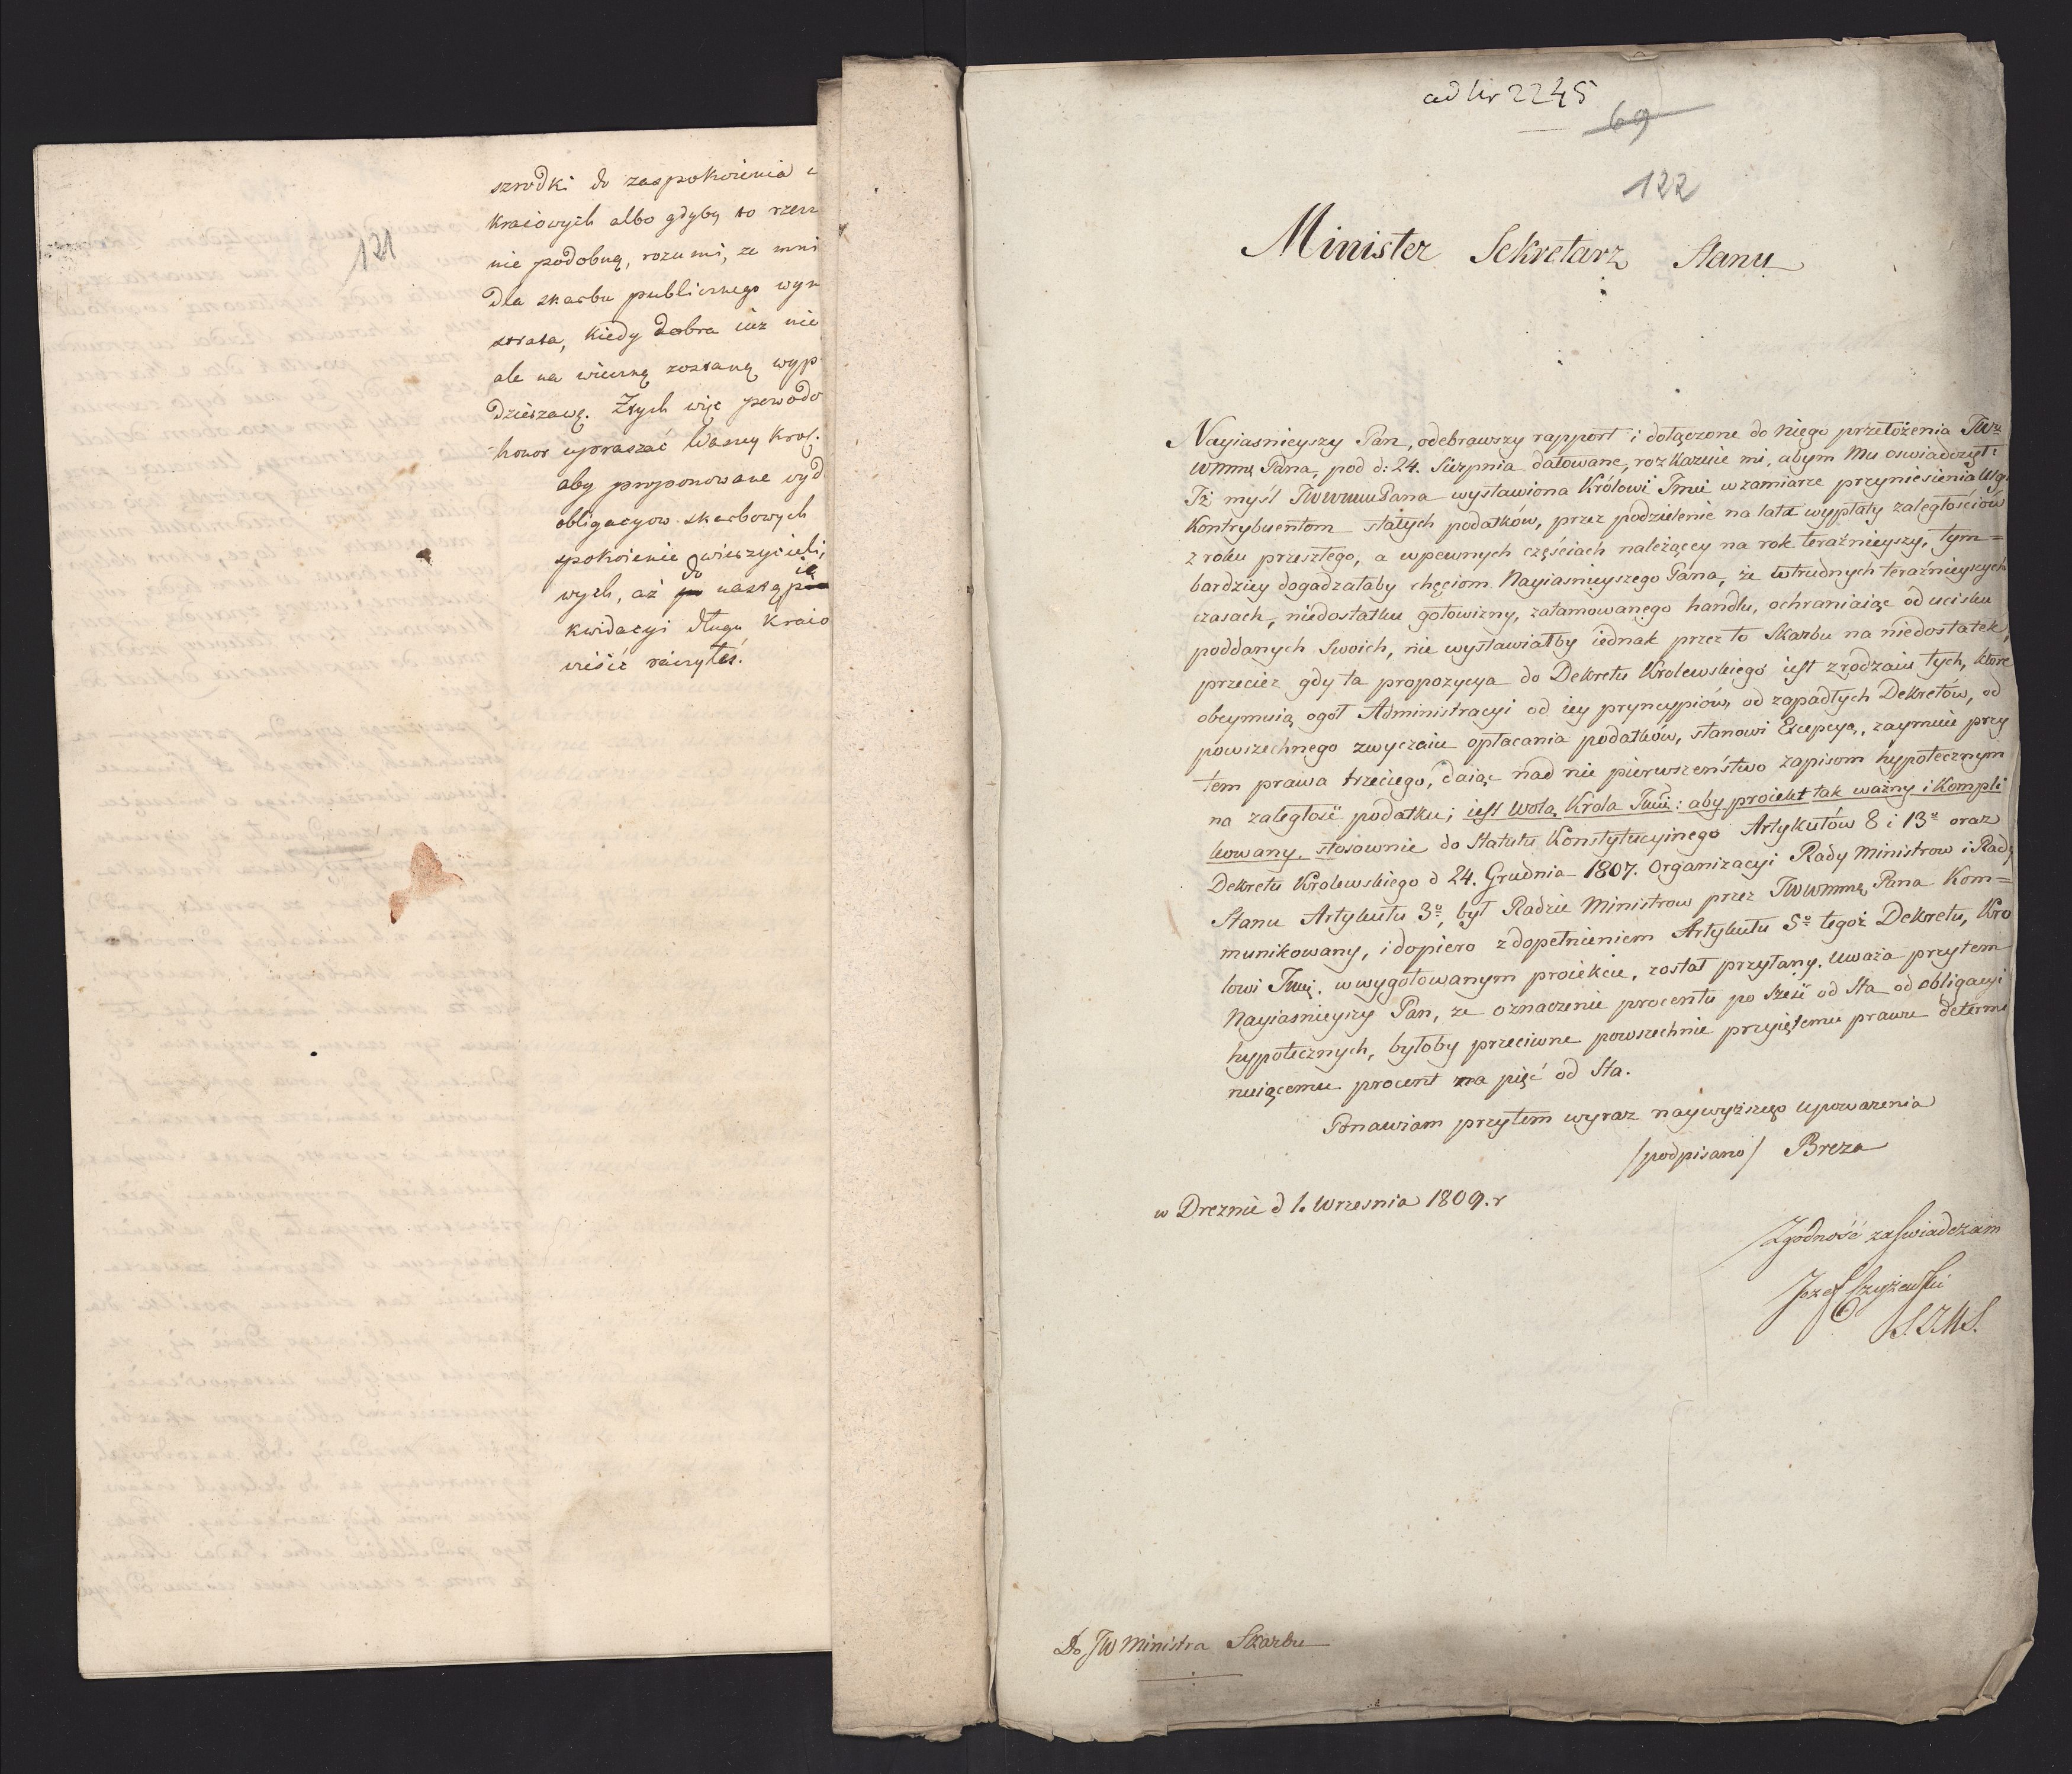 121
szrodki do zaspokoienia
kraiowych albo gdyby to rzecz
nie podobną, rozumi, ze mni
dla skarbu publicznego wyn
strata, kiedy dobra iuz nie
ale na wieczną zostaną wyp
dzierzawę. Ztych więc powodo
honor upraszać Waszey Krol.
aby proponowane wyd
obligacyow skarbowych
spokoienie wierzycieli,
wych, aż do nastąpie
kwidacyi długu kraio
iścić raczyłeś.
ad Nr 2245
69
122
Minister Sekretarz Stanu
Nayiasnieyszy Pan, odebrawszy rapport i dołączone do niego przełożenia JW
WMM Pana, pod d: 24. Sierpnia datowane, rozkazuie mi, abym Mu oswiadczył:
Iż myśl JWWMM Pana wystawiona Królowi Jmci w zamiarze przyniesienia ulgi
Kontrybuentom stałych podatków, przez podzielenie na lata wypłaty zaległościów
z roku przeszłego, a w pewnych częściach należącey na rok teraźnieyszy, tym=
bardziey dogadzałaby chęciom Nayiasnieyszego Pana, że w trudnych teraźnieyszych
czasach, niedostatku gotowizny, zatamowanego handlu, ochraniaiąc od ucisku
poddanych Swoich, nie wystawiałby iednak przez to Skarbu na niedostatek,
przecież gdy ta propozycya do Dekretu Krolewskiego iest z rodzaiu tych, które
obeymuią ogół Administracyi od iey pryncypiów, od zapadłych Dekretów, od
powszechnego zwyczaiu opłacania podatków, stanowi Excepcye, zaymuie przy
tem prawa trzeciego, daiąc nad nie pierwszeństwo zapisom hypotecznym
na zaległość podatku; iest wolą Króla Jmci: aby proiekt tak ważny i Kompli
kowany, stosownie do Statutu Konstytucyinego Artykułów 8 i 13º oraz
Dekretu Krolewskiego d 24. Grudnia 1807. Organizacyi Rady Ministrow i Rady
Stanu Artykułu 3º, był Radzie Ministrow przez JWWMM Pana Kom=
munikowany, i dopiero z dopełnieniem Artykułu 5º tegoż Dekretu, Kro
lowi Jmci, w wygotowanym proiekcie, został przysłany. Uważa przytem
Nayiasnieyszy Pan, ze oznaczenie procentu po sześć od Sta od obligacyi
hypotecznych, byłoby przeciwne powszechnie przyiętemu prawu determi
nuiącemu procent na pięć od Sta.
Ponawiam przytem wyraz naywyższego upoważenia
/podpisano/ Breza
w Dreznie d 1. Wrzesnia 1809. r
Zgodność zaświadczam
Jozef
Do JW Ministra Skarbu